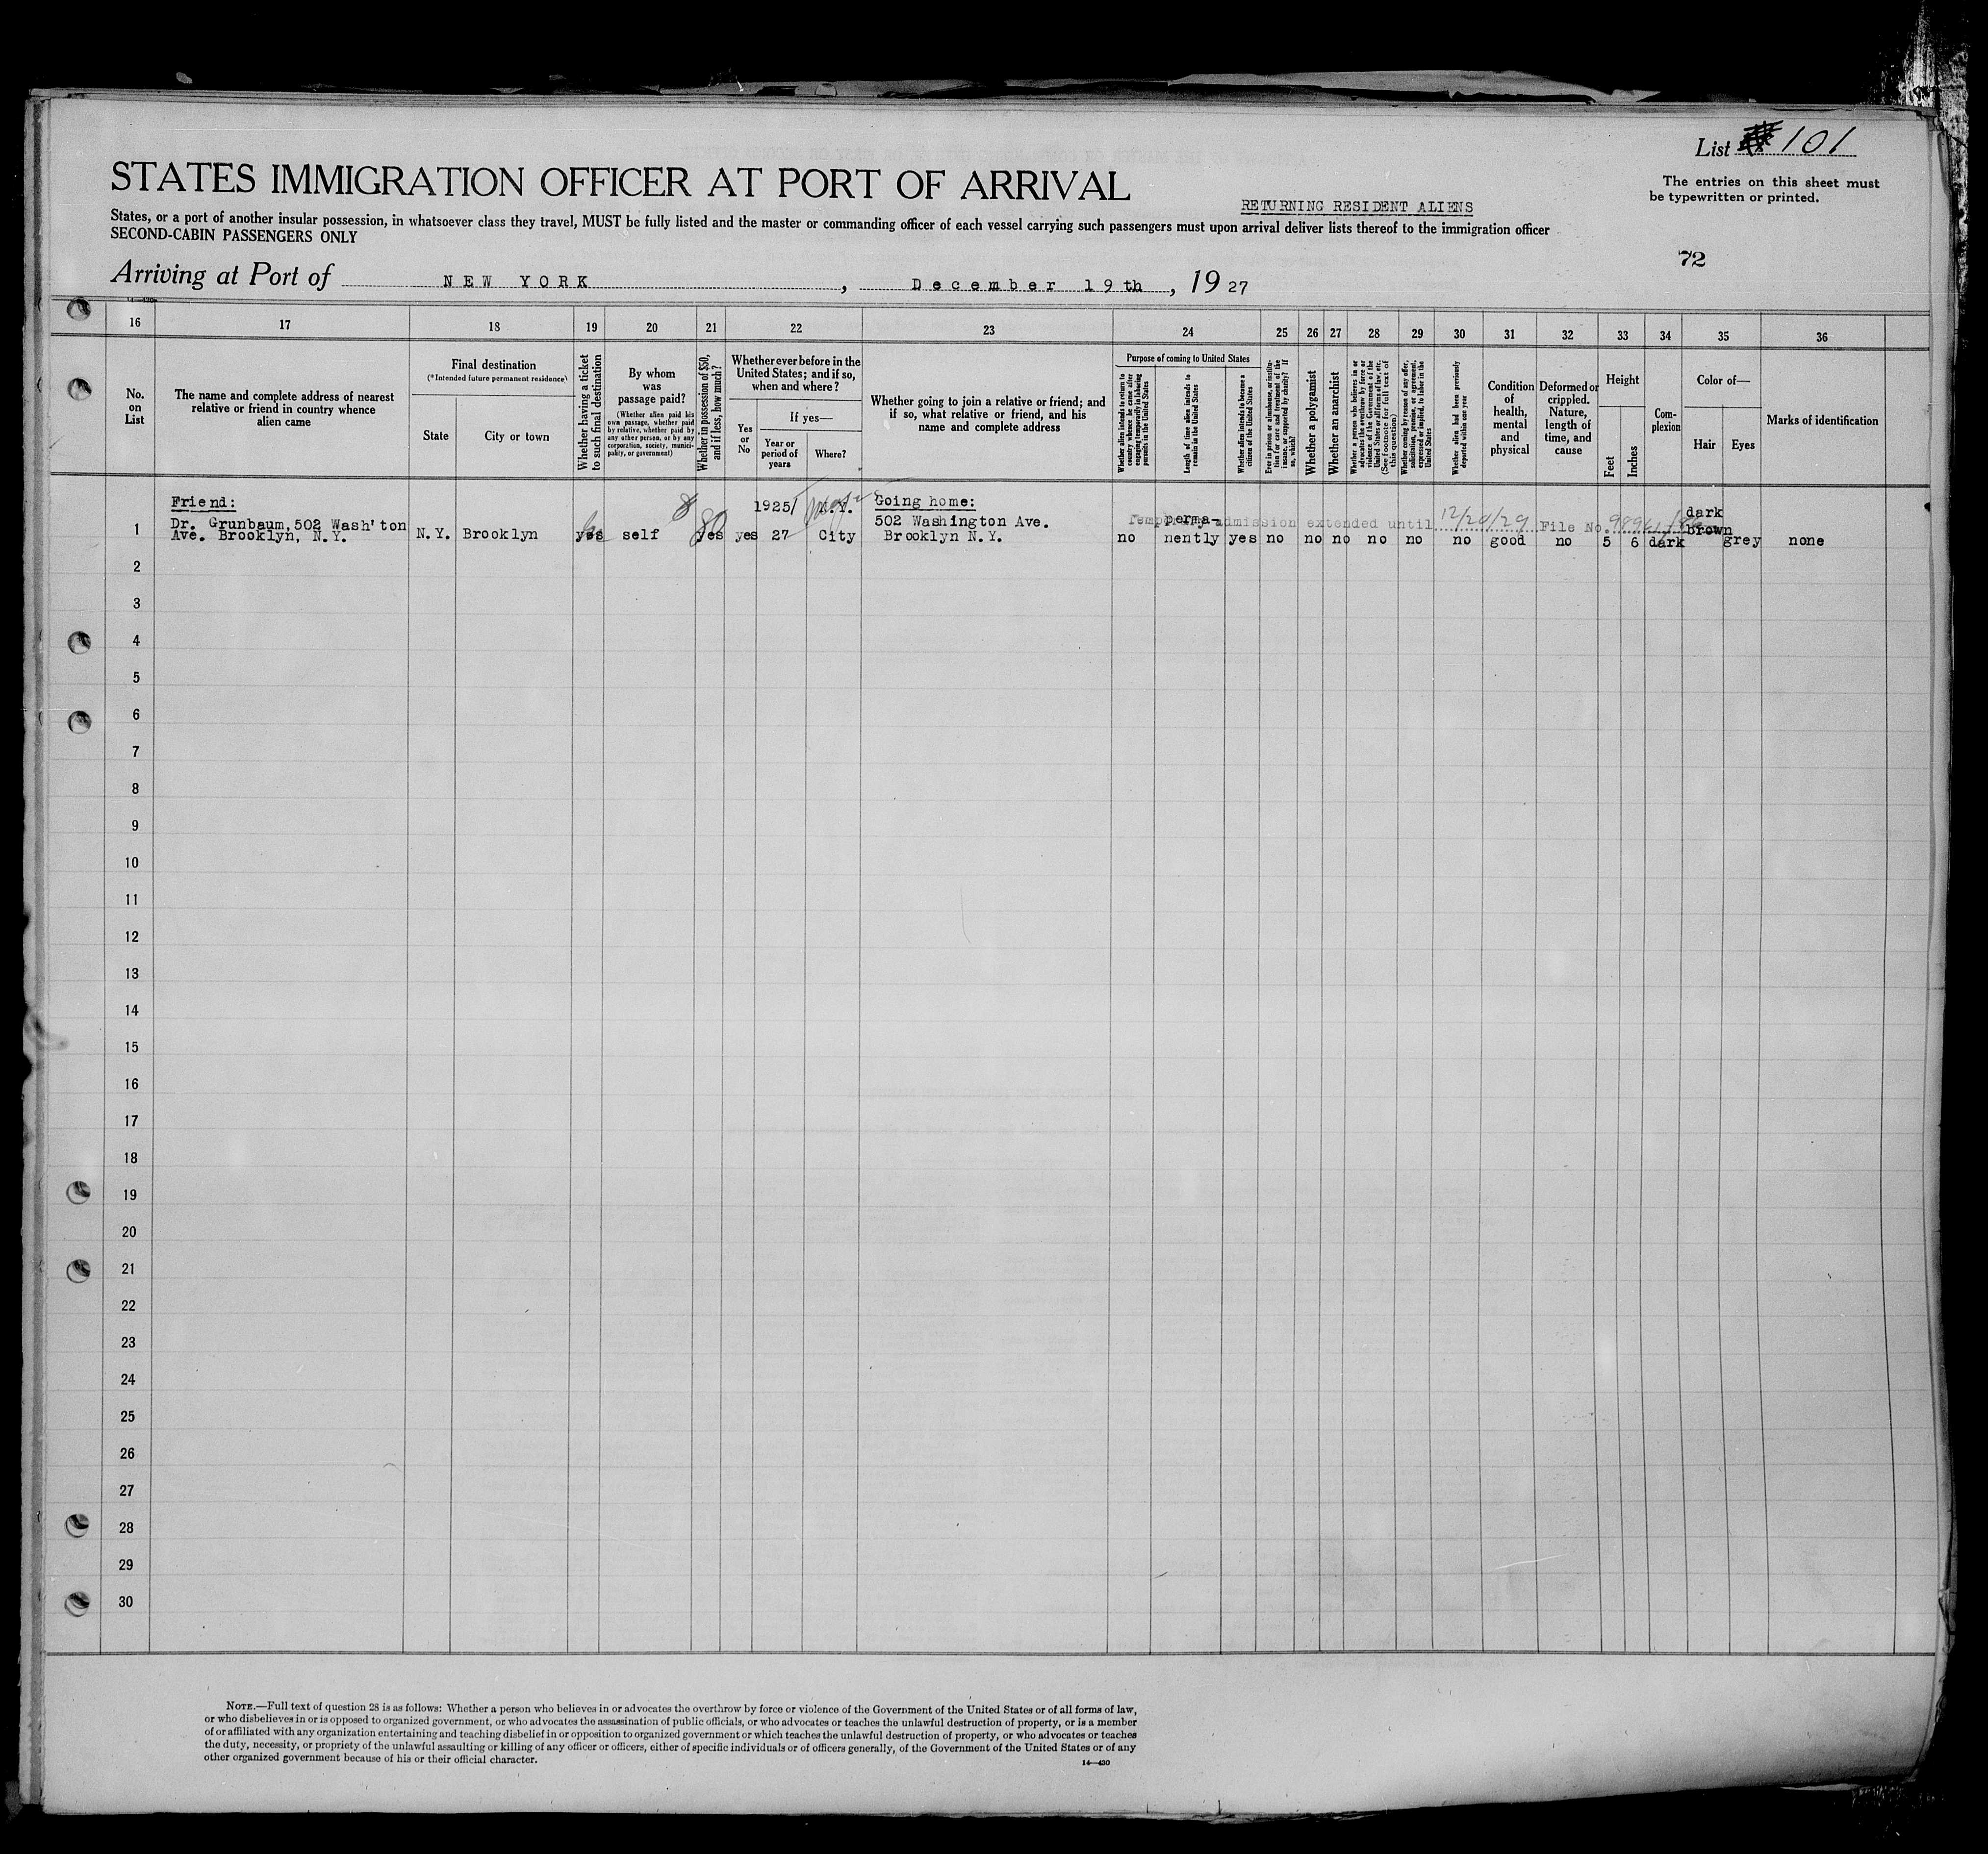 List 101
The entries on this sheet must
be typewritten or printed.
STATES IMMIGRATION OFFICER AT PORT OF ARRIVAL
RETURNING RESIDENT ALIENS
States, or a port of another insular possession, in whatsoever class they travel, MUST be fully listed and the master or commanding officer of each vessel carrying such passengers must upon arrival deliver lists thereof to the immigration officer
SECOND-CABIN PASSENGERS ONLY
72
Arriving at Port of NEW YORK, December 19th, 1927
16 17 18 19 20 21 22 23 24 25 26 27 28 29 30 31 32 33 34 35 36
No.
on
List
The name and complete address of nearest
relative or friend in country whence
alien came
Final destination
(*Intended future permanent residence)
State
City or town
Whether having a ticket
to such final destination
By whom
was
passage paid?
(Whether alien paid his
own passage, whether paid
by relative, whether paid by
any other person, or by any
corporation, society, munici-
pality, or government)
Whether in possession of $50,
and if less, how much?
Whether ever before in the
United States; and if so,
when and where?
Yes
or
No
If yes—
Year or
period of
years
Where?
Whether going to join a relative or friend; and
if so, what relative or friend, and his
name and complete address
Purpose of coming to United States
Whether alien intends to return to
country whence he came after
engaging temporarily in laboring
pursuits in the United States
Length of time alien intends to
remain in the United States
Whether alien intends to become a
citizen of the United States
Ever in prison or almshouse, or institu-
tion for care and treatment of the
insane, or supported by charity? If
so, which?
Whether a polygamist
Whether an anarchist
Whether a person who believes in or
advocates the overthrow by force or
violence of the Government of the
United States or all forms of law, etc.
(See footnote for full text of
this question)
Whether coming by reason of any offer,
solicitation, promise, or agreement,
expressed or implied, to labor in the
United States
Whether alien had been previously
deported within one year
Condition
of
health,
mental
and
physical
Deformed or
crippled.
Nature,
length of
time, and
cause
Height
Feet
Inches
Com-
plexion
Color of—
Hair
Eyes
Marks of identification
Friend: 1925/ N.Y. Going home: dark
Dr. Grunbaum, 502 Wash'ton 502 Washington Ave. perma- brown
Temporary admission extended until 12/20/29 File No.
1 Ave. Brooklyn, N.Y. N.Y. Brooklyn yes self 80 yes yes 27 City Brooklyn N.Y. no nently yes no no no no no no good no 5 6 dark grey none
2
3
4
5
6
7
8
9
10
11
12
13
14
15
16
17
18
19
20
21
22
23
24
25
26
27
28
29
30
NOTE.—Full text of question 28 is as follows: Whether a person who believes in or advocates the overthrow by force or violence of the Government of the United States or of all forms of law,
or who disbelieves in or is opposed to organized government, or who advocates the assassination of public officials, or who advocates or teaches the unlawful destruction of property, or is a member
of or affiliated with any organization entertaining and teaching disbelief in or opposition to organized government or which teaches the unlawful destruction of property, or who advocates or teaches
the duty, necessity, or propriety of the unlawful assaulting or killing of any officer or officers, either of specific individuals or of officers generally, of the Government of the United States or of any
other organized government because of his or their official character.
14—430